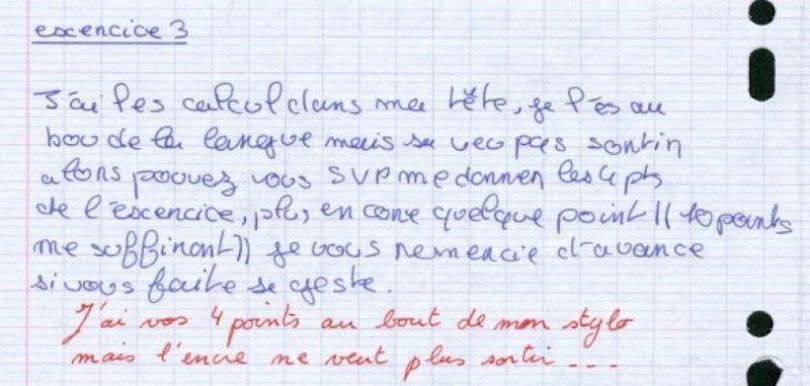 excencice 3
J'ai les calcul dans ma tête, je l'es au
bou de la langue mais sa veo pas sontin
alons pouvez vous SVP me donnen les 4 pts
de l'excencice, plus en cone quelque point (( 10 points
me suffinont )) je vous nemencie d'avance
si vous faite se geste.
J'ai vos 4 points au bout de mon stylo
mais l'encre ne veut plus sortir ---